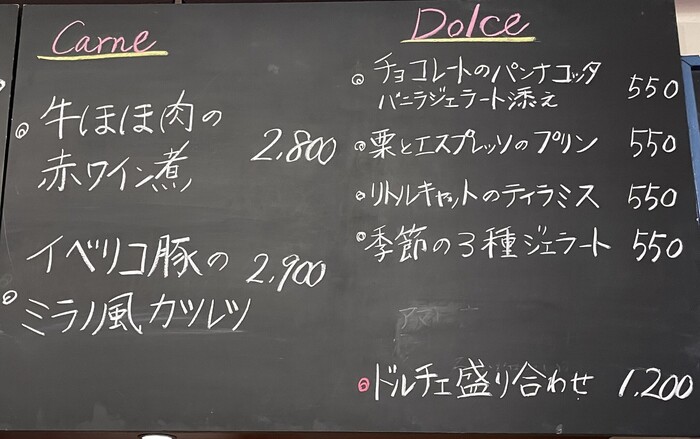 Carne
牛ほほ肉の
赤ワイン煮 2,800
イベリコ豚の 2,900
ミラノ風カツレツ
Dolce
チョコレートのパンナコッタ
バニラジェラート添え 550
栗とエスプレッソのプリン 550
リトルキャットのティラミス 550
季節の3種ジェラート 550
ドルチェ盛り合わせ 1,200